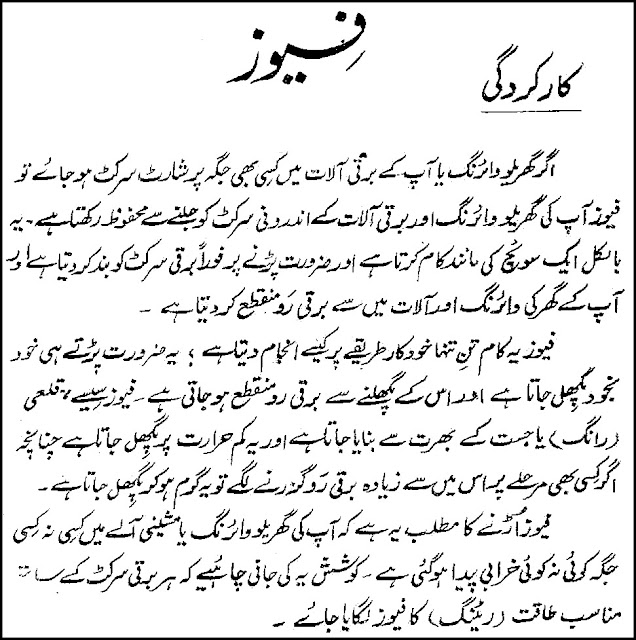 فیوز
کارکردگی
اگر گھریلو وائرنگ یا آپ کے برقی آلات میں کسی بھی جگہ پر شارٹ سرکٹ ہو جائے تو
فیوز آپ کی گھریلو وائرنگ اور برقی آلات کے اندرونی سرکٹ کو جلنے سے محفوظ رکھتا ہے۔ یہ
بالکل ایک سوئچ کی مانند کام کرتا ہے اور ضرورت پڑنے پر فوراً برقی سرکٹ کو بند کر دیتا ہے اور
آپ کے گھر کی وائرنگ اور آلات میں سے برقی رَو منقطع کر دیتا ہے ۔
فیوز یہ کام تنِ تنہا خودکار طریقے پر کیسے انجام دیتا ہے ؛ یہ ضرورت پڑتے ہی خود
بخود پگھل جاتا ہے اور اس کے پگھلنے سے برقی رو منقطع ہو جاتی ہے ۔ فیوز سیسے، قلعی
(رانگ) یا جست کے بھرت سے بنایا جاتا ہے اور یہ کم حرارت پر پگھل جاتا ہے چنانچہ
اگر کسی بھی مرحلے پر اس میں سے زیادہ برقی رَو گزرنے لگے تو یہ گرم ہو کر پگھل جاتا ہے ۔
فیوز اُڑنے کا مطلب یہ ہے کہ آپ کی گھریلو وائرنگ یا مشینی آلے میں کسی نہ کسی
جگہ کوئی نہ کوئی خرابی پیدا ہو گئی ہے ۔ کوشش یہ کی جانی چاہئیے کہ ہر برقی سرکٹ کے ساتھ
مناسب طاقت (ریٹنگ) کا فیوز لگایا جائے ۔